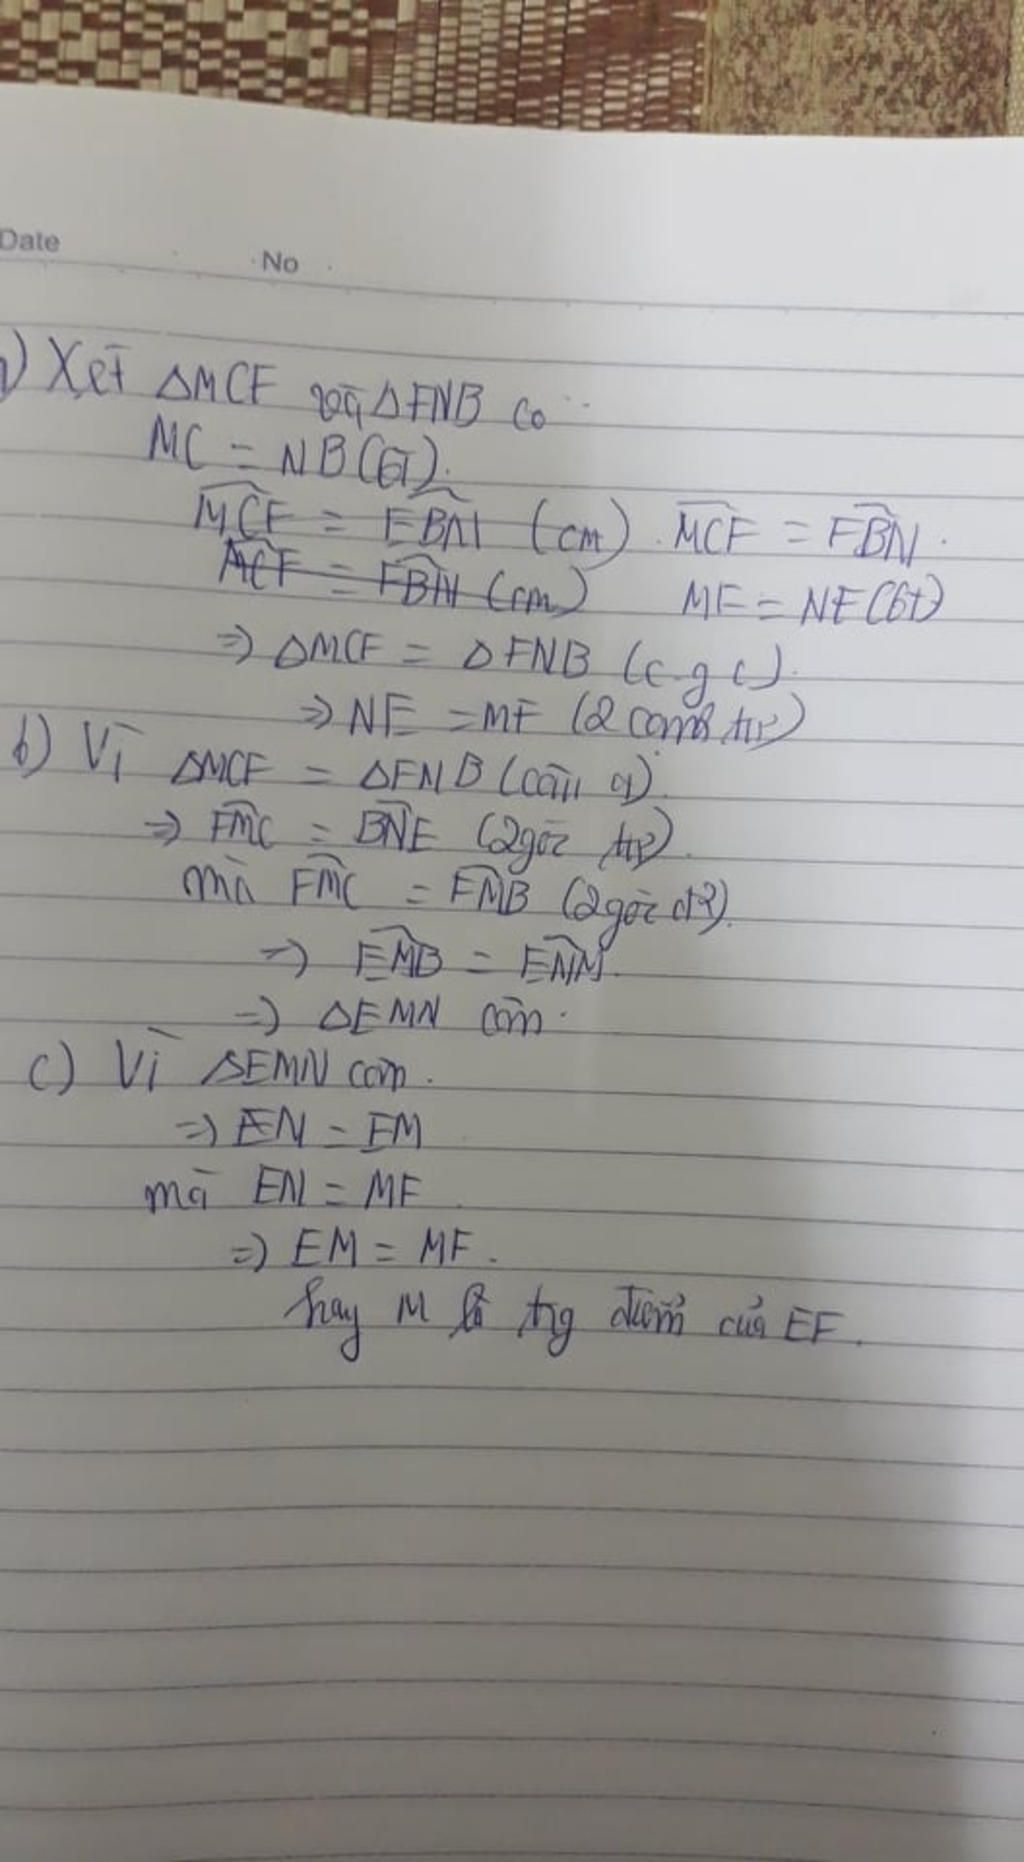 Date
No
a) Xét ΔMCF và ΔFNB có
MC = NB (GT).
MCF = EBN (cm). MCF = FBN.
ACF = FBN (cm) MF = NE (Gt)
=> ΔMCF = ΔFNB (c.g.c).
=> NE = MF (2 cạnh tư)
b) Vì ΔMCF = ΔFNB (câu a)
=> FMC = BNE (2 góc tư).
mà FMC = EMB (2 góc đ²).
=> EMB = ENM.
=> ΔEMN cân.
c) Vì ΔEMN cân.
=> EN = EM
mà EN = MF
=> EM = MF.
hay M là trg điểm của EF.